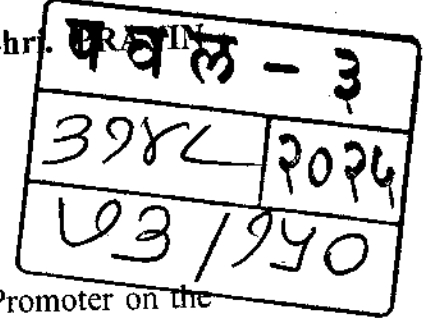 hri. PRAVIN
पवल - ३
३१४८ २०२५
७३/१५०
Promoter on the